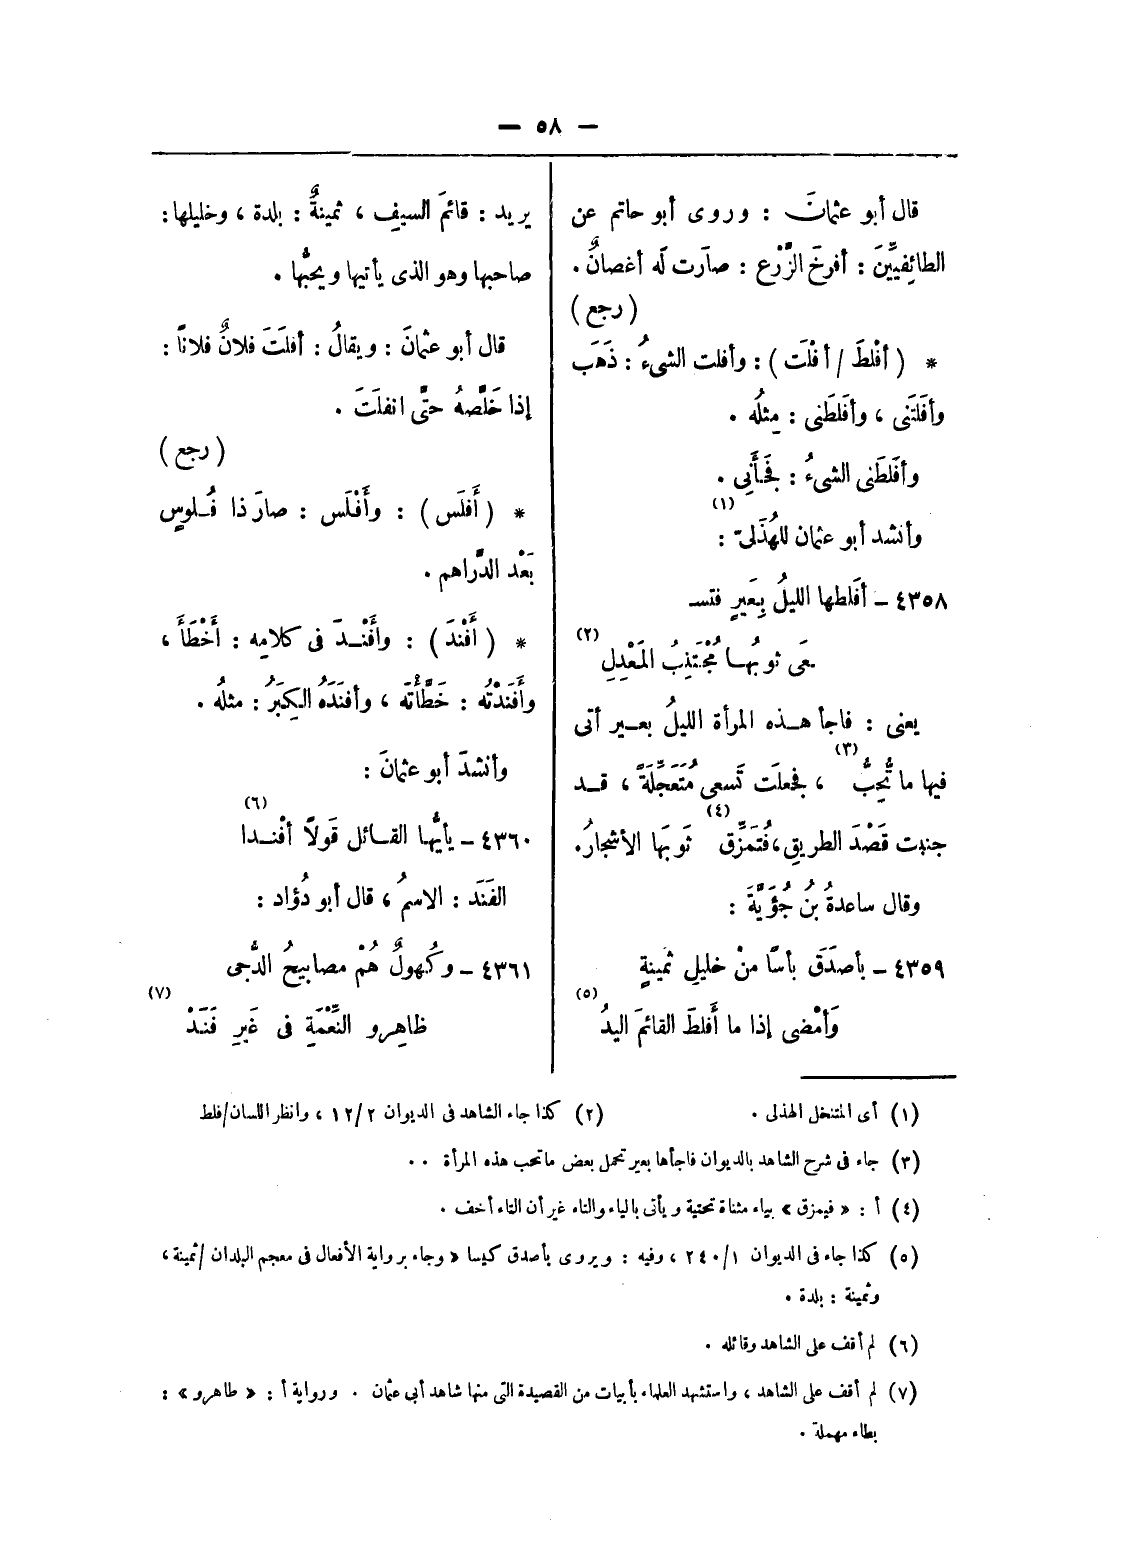 — ٥٨ —
قال أبو عثمانَ : وروى أبو حاتم عن
الطائِفيِّينَ : أفرخَ الزَّرْع : صارت له أغصانٌ .
( رجع )
* ( أفْلطَ / أفْلَت ) : وأفلت الشىءُ : ذَهَب
وأفَلتَنى ، وأفَلطَنى : مِثلُه .
وأفَلطَنى الشىءُ : فَجأَنِى .
وأنشد أبو عثمان للهُذَلىّ (١) :
٤٣٥٨ ـ أفَلطها الليلُ بِعَيرٍ فتسـ
ـعَى ثوبُها مُجْتَذِبُ المَعْدِلِ (٢)
يعنى : فاجأ هذه المرأة الليلُ بعير أتى
فيها ما تُحِبُّ (٣) ، فجعلَت تَسعى مُتَعَجِّلَةً ، قد
جنبت قَصْدَ الطريقِ ، فُتمَزِّق (٤) ثَوبَها الأشجارُ .
وقال ساعدةُ بنُ جُؤَيَّةَ :
٤٣٥٩ ـ بأصدَقَ بأسًا منْ خليلِ ثمينةٍ
وَأمْضى إذا ما أَفلطَ القائمَ اليدُ (٥)
يريد : قائمَ السيفِ ، ثمينةٌ : بلدة ، وخليلها :
صاحبها وهو الذى يأتيها ويحبُّها .
قال أبو عثمانَ : ويقالُ : أفلتَ فلانٌ فلانًا :
إذا خَلَّصهُ حتَّى انفلَتَ .
( رجع )
* ( أَفلَس ) : وأَفْلَس : صارَ ذا فُلوسٍ
بَعْد الدَّراهم .
* ( أَفْندَ ) : وأَفْندَ فى كلامِه : أَخْطَأَ ،
وأَفَندْتُه : خَطَّأْتُه ، وأفنَدَهُ الكِبَرُ : مثلُه .
وأنشدَ أبو عثمانَ :
٤٣٦٠ ـ يأيُّها القائل قَولاً أفْندا (٦)
الفَنَد : الاسمُ ، قال أبو دُؤاد :
٤٣٦١ ـ وكُهولٌ هُمْ مصابيحُ الدُّجى
ظاهِرو النِّعْمَةِ فى غَيرِ فَنَدْ (٧)
(١) أى المتنخل الهذلى .
(٢) كذا جاء الشاهد فى الديوان ١٢/٢ ، وانظر اللسان/فلط
(٣) جاء فى شرح الشاهد بالديوان فاجأها بعير تحمل بعض ماتحب هذه المرأة ..
(٤) أ : « فيمزق » بياء مثناة تحتية ويأتى بالياء والتاء غير أن التاء أخف .
(٥) كذا جاء فى الديوان ٢٤٠/١ ، وفيه : ويروى بأصدق كيسا « وجاء برواية الأفعال فى معجم البلدان / ثمينة ،
وثمينة : بلدة .
(٦) لم أقف على الشاهد وقائله .
(٧) لم أقف على الشاهد ، واستشهد العلماء بأبيات من القصيدة التى منها شاهد أبى عثمان . ورواية أ : « طاهرو » :
بطاء مهملة .